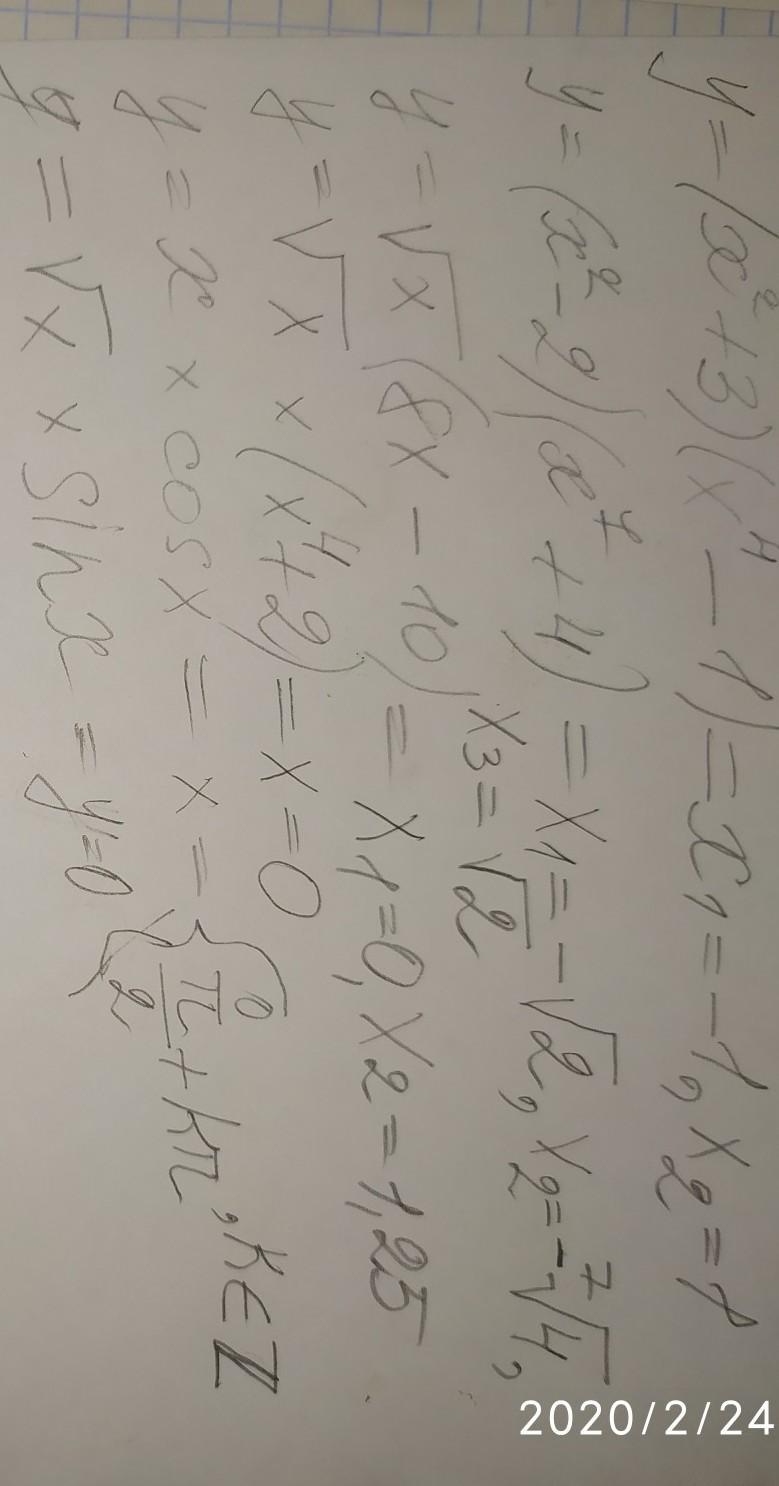 y = (x²+3)(x⁴ - 1) = x₁ = -1, x₂ = 1
y = (x² - 2)(x⁷ + 4) = x₁ = -√2, x₂ = -⁷√4,
x₃ = √2
y = √x (8x - 10) = x₁ = 0, x₂ = 1,25
y = √x × (x⁴ + 2) = x = 0
y = x × cos x = x = { 0 π/2 + kπ, k ∈ Z
y = √x × sin x = y = 0
2020/2/24